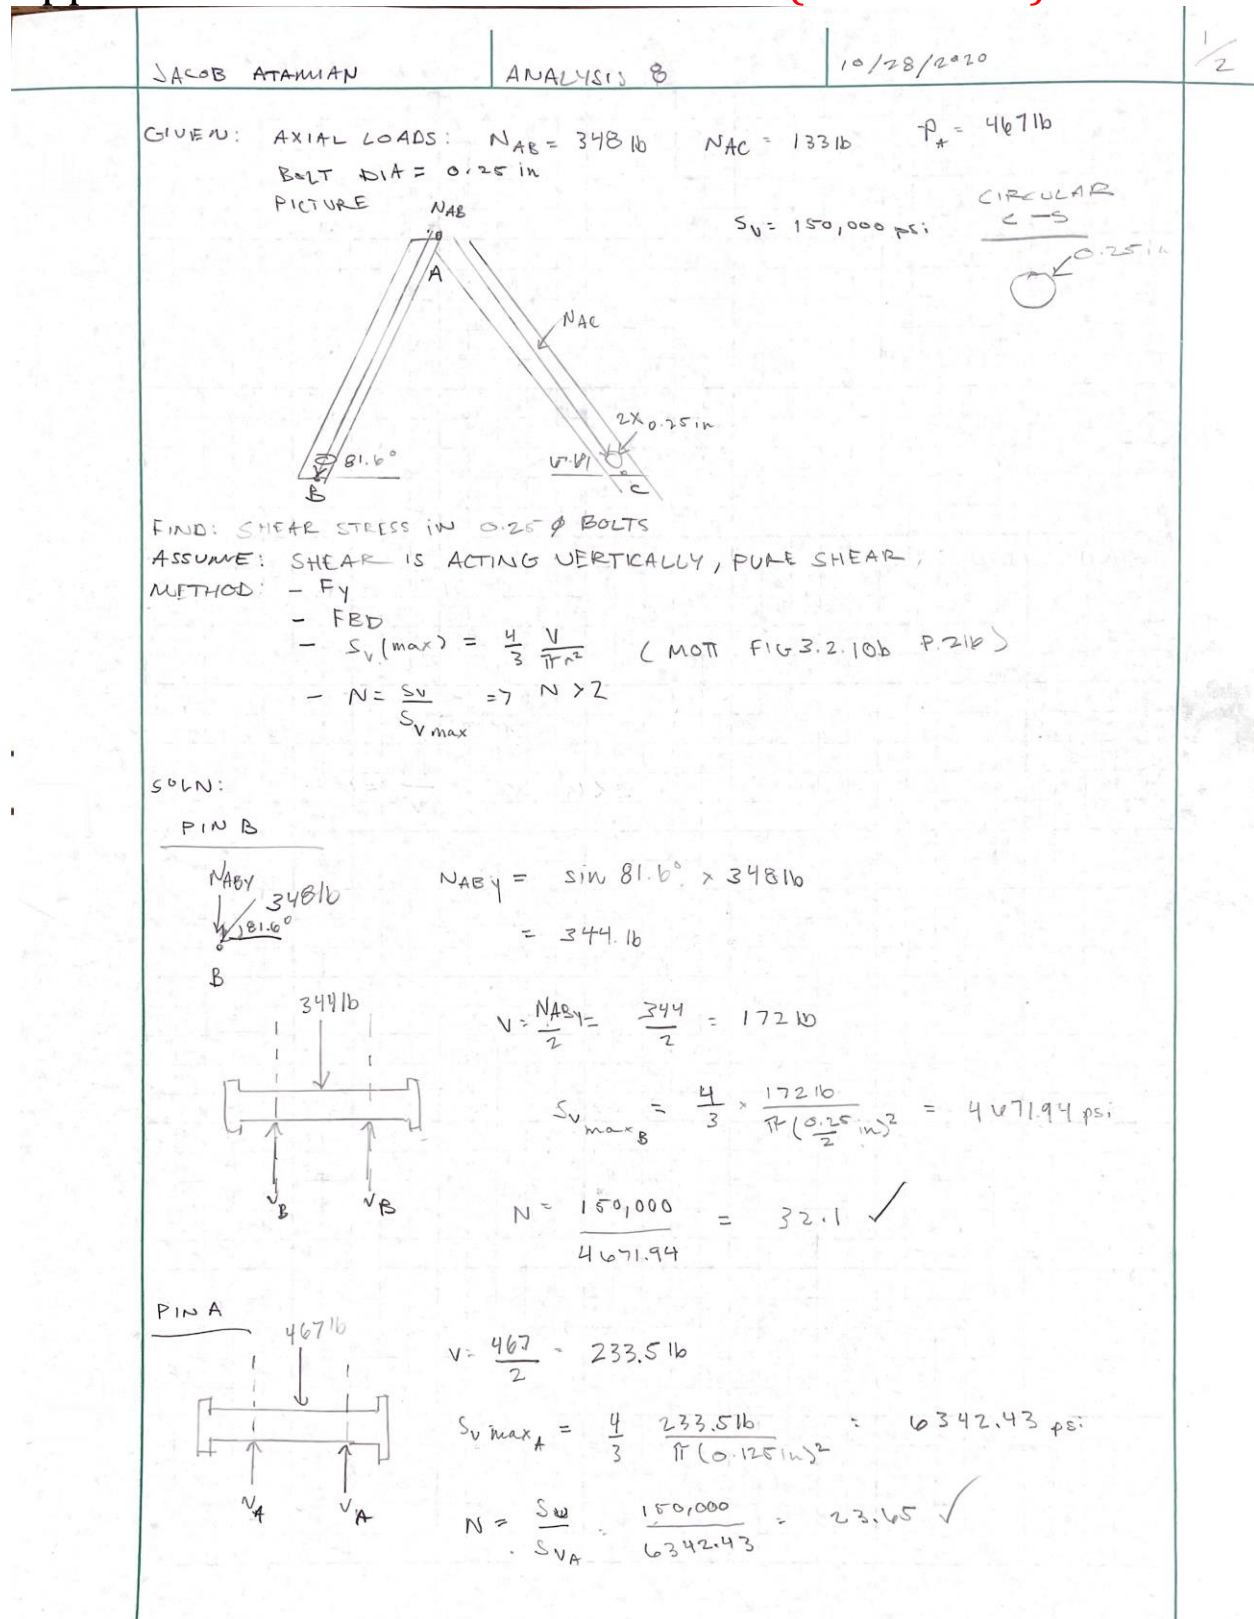 1/2
JACOB ATAMIAN ANALYSIS 8 10/28/2020
GIVEN: AXIAL LOADS: N_AB = 348 lb N_AC = 133 lb P_A = 467 lb
BOLT DIA = 0.25 in
PICTURE
S_v = 150,000 psi
CIRCULAR
C-S
0.25 in
N_AB
A
N_AC
2X 0.25 in
81.6°
B
C
FIND: SHEAR STRESS IN 0.25 ϕ BOLTS
ASSUME: SHEAR IS ACTING VERTICALLY, PURE SHEAR.
METHOD: - Fy
- FBD
- S_v (max) = 4/3 V/πr² (MOTT FIG 3.2.10b P.216)
- N = S_v/S_v max => N > 2
SOLN:
PIN B
N_ABY
348 lb
81.6°
B
N_ABy = sin 81.6° × 348 lb
= 344. lb
344 lb
V = N_ABy/2 = 344/2 = 172 lb
S_v max_B = 4/3 × 172 lb/π(0.25/2 in)² = 4671.94 psi
V_B V_B
N = 150,000/4671.94 = 32.1 ✓
PIN A
467 lb
V = 467/2 = 233.5 lb
S_v max_A = 4/3 233.5 lb/π(0.125 in)² = 6342.43 psi
V_A V_A
N = S_v/S_VA = 150,000/6342.43 = 23.65 ✓